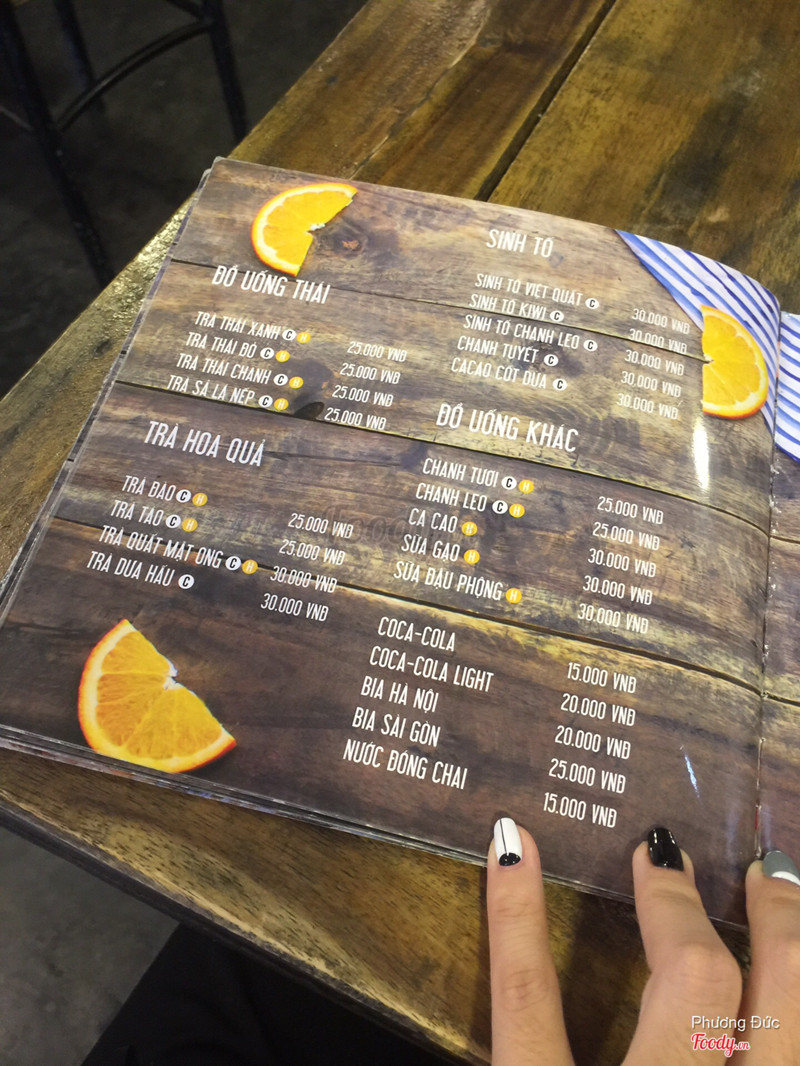 ĐỒ UỐNG THÁI
TRÀ THÁI XANH C H 25.000 VNĐ
TRÀ THÁI ĐỎ C H 25.000 VNĐ
TRÀ THÁI CHANH C H 25.000 VNĐ
TRÀ SẢ LÁ NẾP C H 25.000 VNĐ
TRÀ HOA QUẢ
TRÀ ĐÀO C H 25.000 VNĐ
TRÀ TÁO C H 25.000 VNĐ
TRÀ QUẤT MẬT ONG C H 30.000 VNĐ
TRÀ DƯA HẤU C 30.000 VNĐ
SINH TỐ
SINH TỐ VIỆT QUẤT C 30.000 VNĐ
SINH TỐ KIWI C 30.000 VNĐ
SINH TỐ CHANH LEO C 30.000 VNĐ
CHANH TUYẾT C 30.000 VNĐ
CACAO CỐT DỪA C 30.000 VNĐ
ĐỒ UỐNG KHÁC
CHANH TƯƠI C H 25.000 VNĐ
CHANH LEO C H 25.000 VNĐ
CA CAO H 30.000 VNĐ
SỮA GẠO H 30.000 VNĐ
SỮA ĐẬU PHỘNG H 30.000 VNĐ
COCA-COLA 15.000 VNĐ
COCA-COLA LIGHT 20.000 VNĐ
BIA HÀ NỘI 20.000 VNĐ
BIA SÀI GÒN 25.000 VNĐ
NƯỚC ĐÓNG CHAI 15.000 VNĐ
Phương Đức
Foody.vn